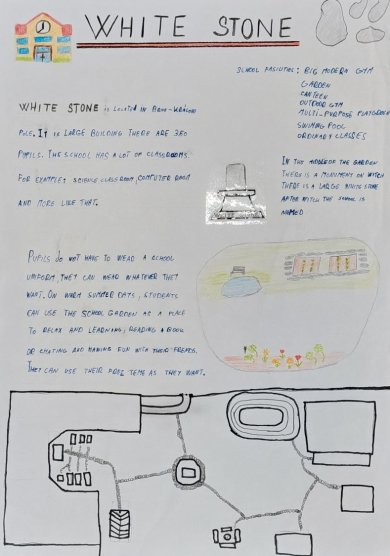 WHITE STONE
SCHOOL FASILITIES: BIG MODERN GYM
GARDEN
CANTEEN
OUTDOR GYM
MULTI-PURPOSE PLAYGROUND
SWIMING POOL
ORDINARY CLASSES
WHITE STONE is LOCATED IN BRNO-KRÁLOVO
POLE. IT IS LARGE BUILDING THERE ARE 350
PUPILS. THE SCHOOL HAS A LOT OF CLASSROOMS.
FOR EXAMPLE: SCIENCE CLASSROOM, COMPUTER ROOM
AND MORE LIKE THAT.
IN THE MIDDLE OF THE GARDEN
THERE IS A MONUMENT ON WITCH
THERE IS A LARGE WHITE STONE
AFTER WITCH THE SCHOOL IS
NAMED
PUPILS DO NOT HAVE TO WEAR A SCHOOL
UNIFORM, THEY CAN WEAR WHATEVER THEY
WANT. ON WARM SUMMER DAYS, STUDENTS
CAN USE THE SCHOOL GARDEN AS A PLACE
TO RELAX AND LEARNING, READING A BOOK
OR CHATING AND HAVING FUN WITH THEIR FRIENDS.
THEY CAN USE THEIR FREE TEME AS THEY WANT.